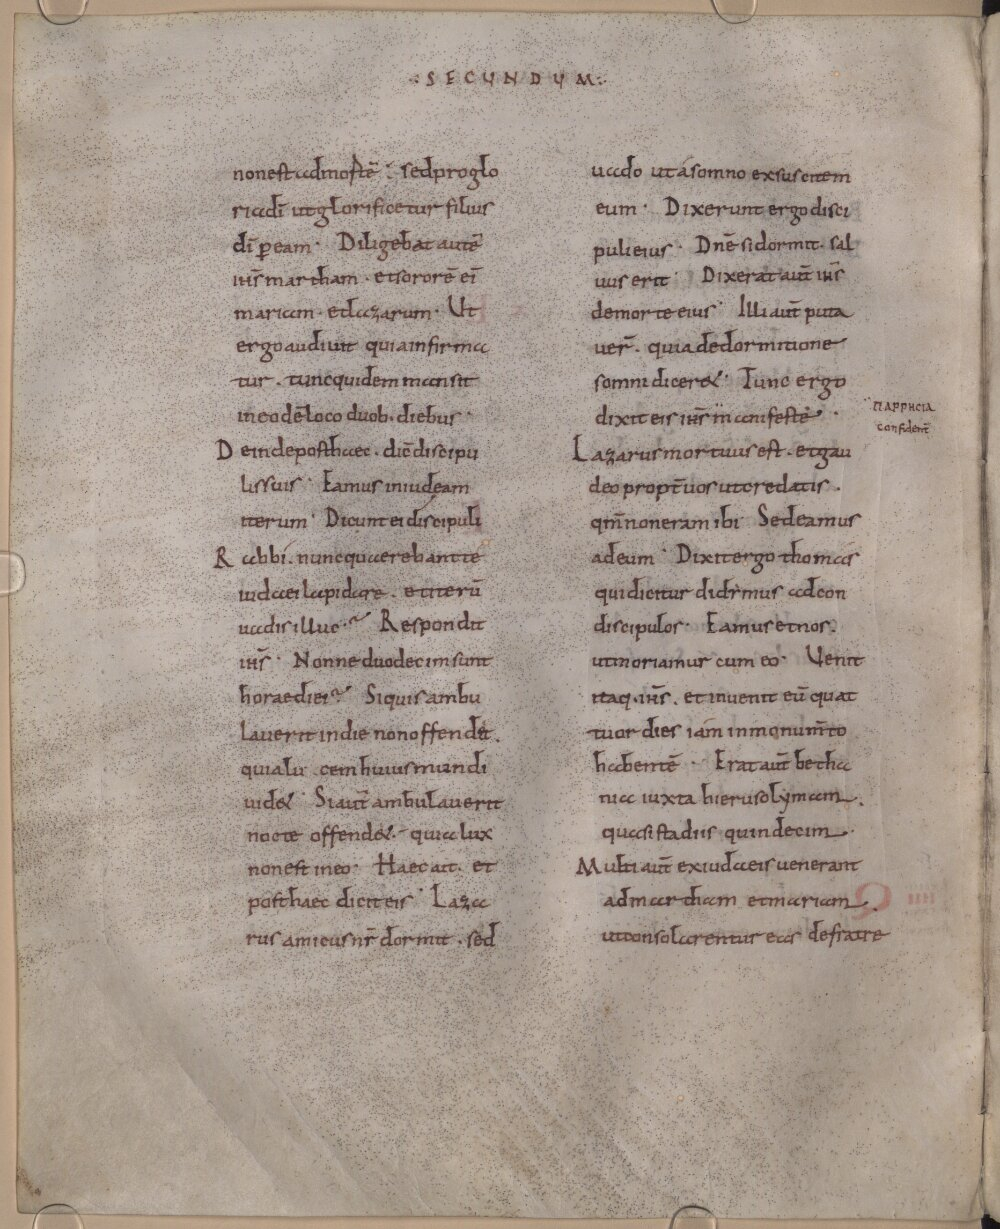 SECUNDUM
non est ad mortē · sed pro glo
ria dī ut glorificetur filius
dī p eam · Diligebat autē
ihs̄ martham · et sororē ei᾽
mariam · et lazarum · Ut
ergo audiuit quia infirma
tur · tunc quidem mansit
in eodē loco duob · diebus ·
Deinde post haec · dic̄ discipu
lis suis · Eamus in iudeam
iterum · Dicunt ei discipuli
Rabbi · nunc quaerebant te
iudaei lapidare · et iterū
uadis illuc · Respondit
ihs̄ · Nonne duodecim sunt
horae diei · Si quis ambu
lauerit in die non offendet ·
quia lucem huius mundi
uidet · Si aut̄ ambulauerit
nocte offendet · quia lux
non est in eo · Haec ait · et
post haec dicit eis · Laza
rus amicus nr̄ dormit · sed
uado ut a somno exsuscitem
eum · Dixerunt ergo disci
puli eius · Dnē si dormit · sal
uus erit · Dixerat aut̄ ihs̄
de morte eius · Illi aut̄ puta
uer̄ · quia de dormitione
somni diceret · Tunc ergo
dixit eis ihs̄ manifeste ·
ΠΑΡΡΗCΙΑ
confident̄
Lazarus mortuus est · et gau
deo propt̄ uos ut credatis ·
qm̄ non eram ibi · Sed eamus
ad eum · Dixit ergo thomas
qui dicitur didimus ad con
discipulos · Eamus et nos ·
ut moriamur cum eo · Uenit
itaq · ihs̄ · et inuenit eū quat
tuor dies iam in monum̄to
habentē · Erat aut̄ betha
nia iuxta hierusolymam ·
quasi stadiis quindecim ·
Multi aut̄ ex iudaeis uenerant
ad martham et mariam ·
ut consolarentur eas de fratre